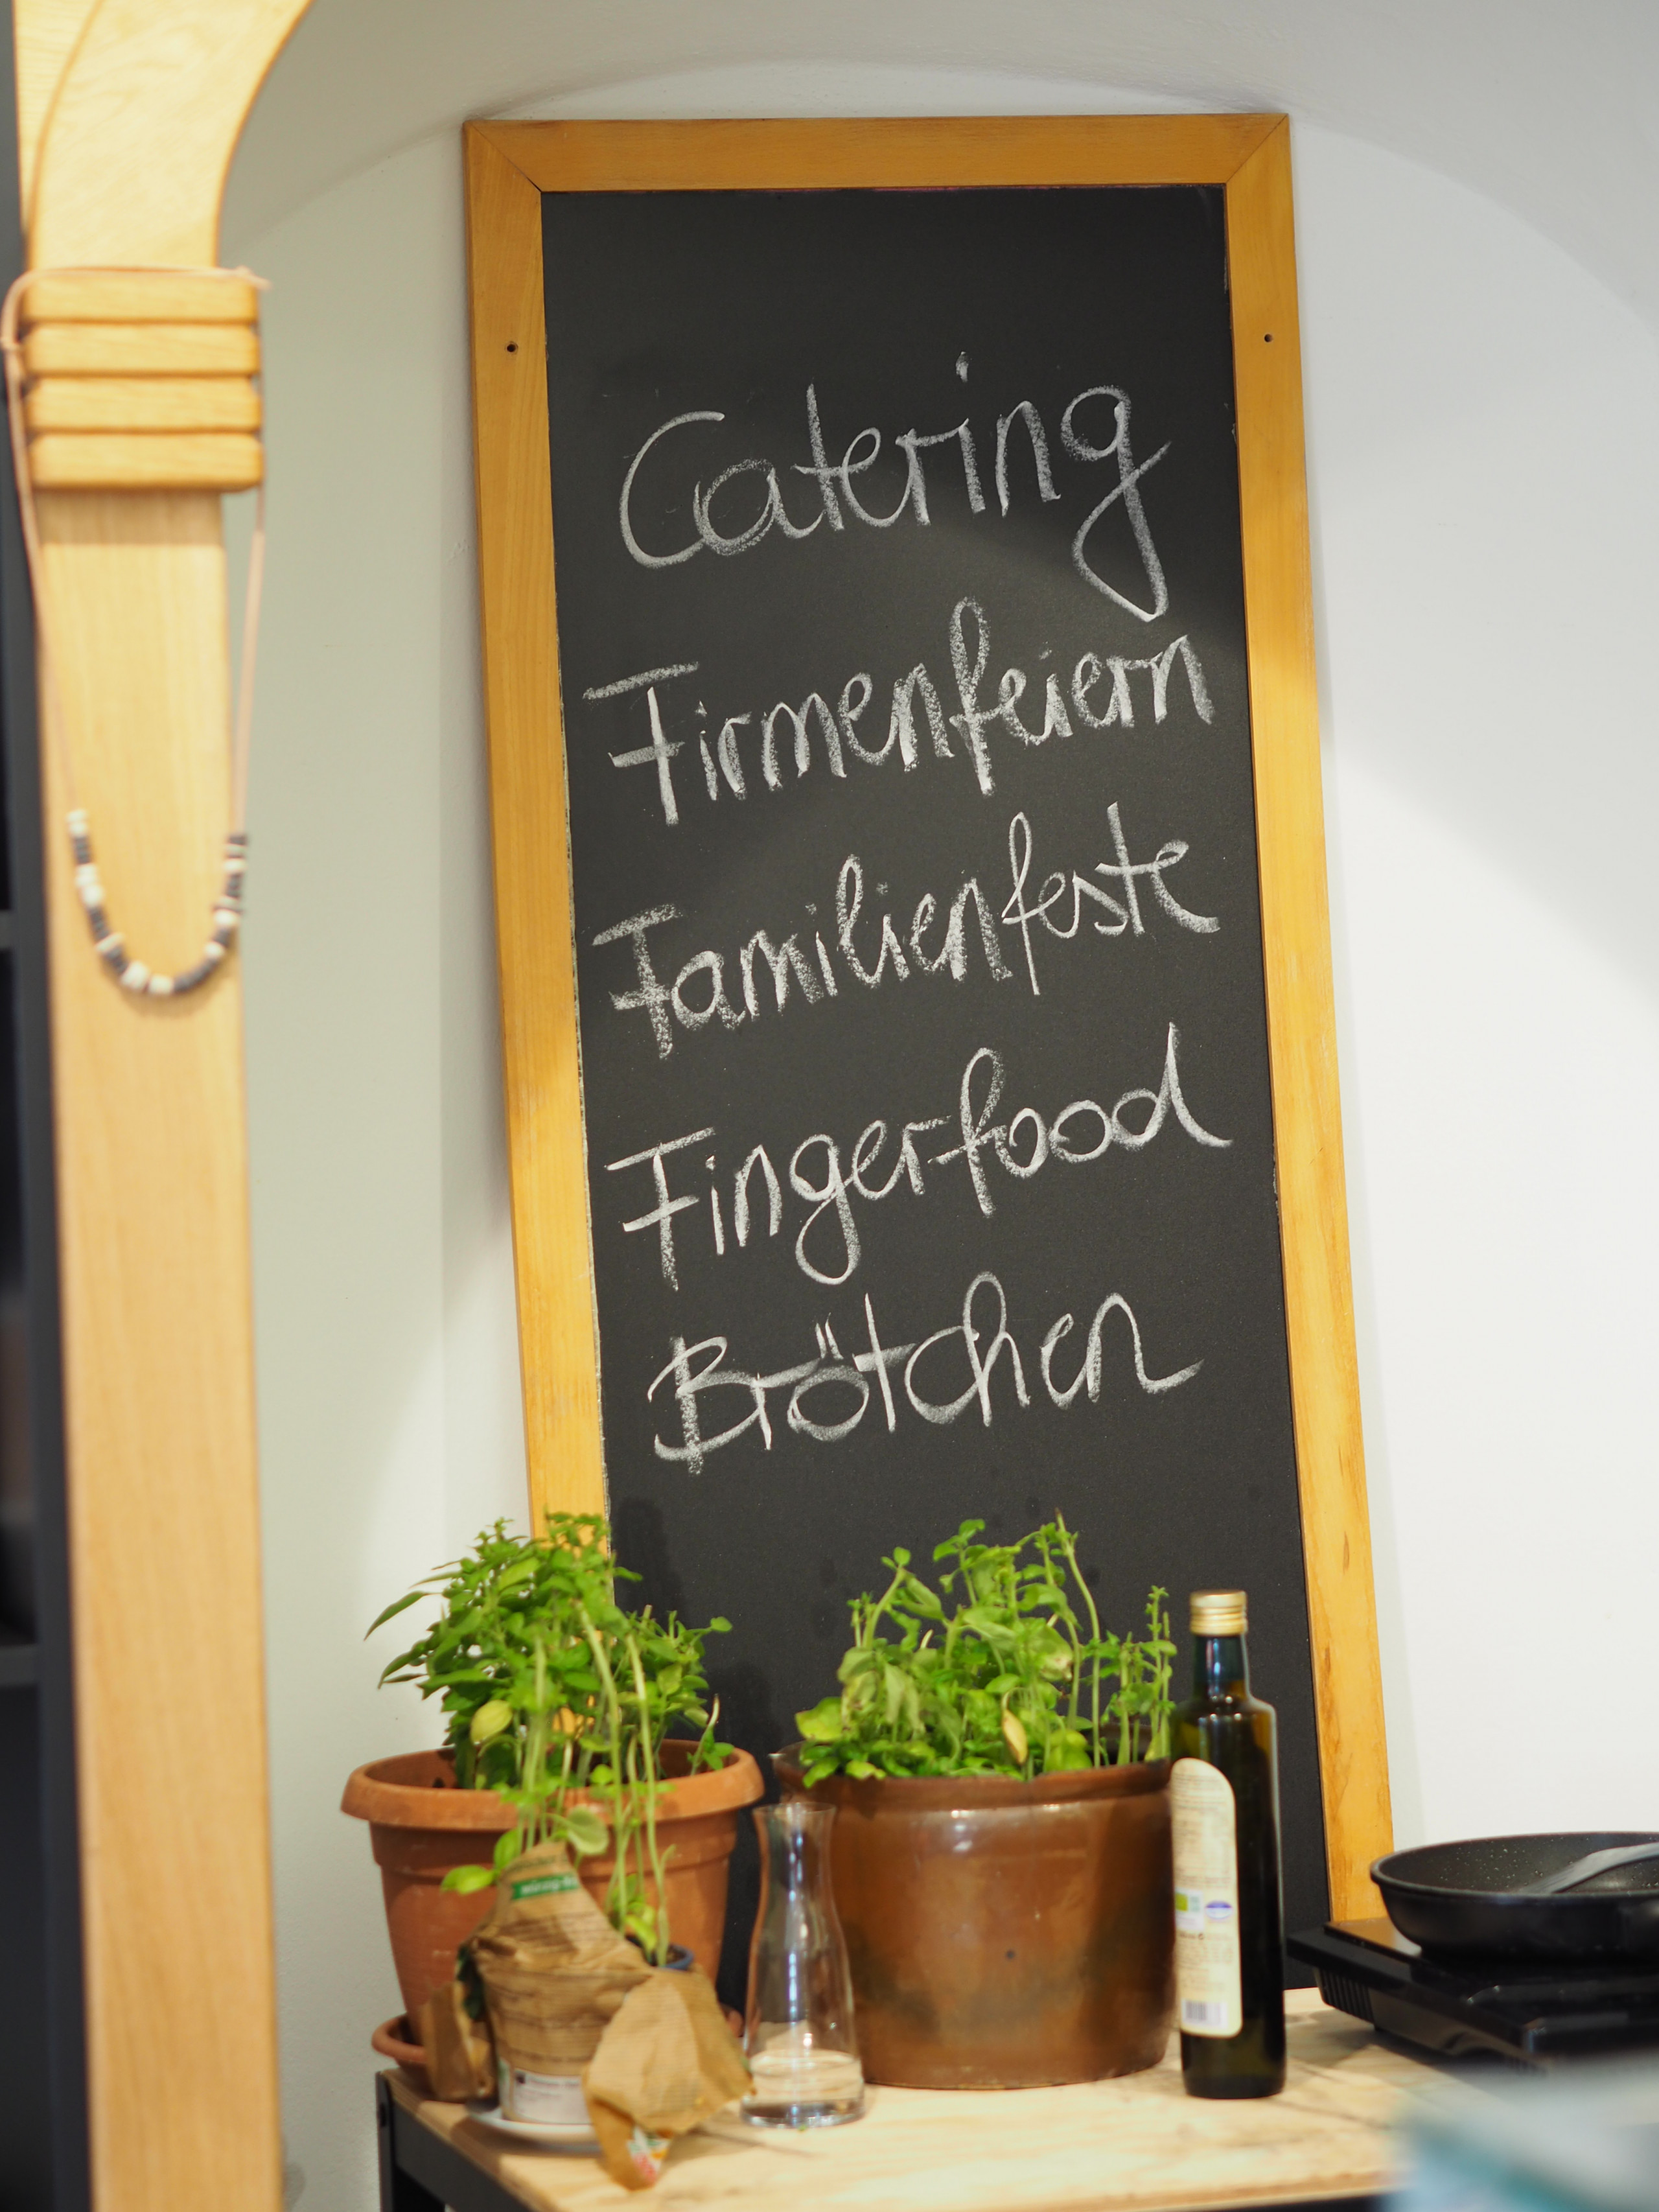 Catering
Firmenfeiern
Familienfeste
Fingerfood
Brötchen